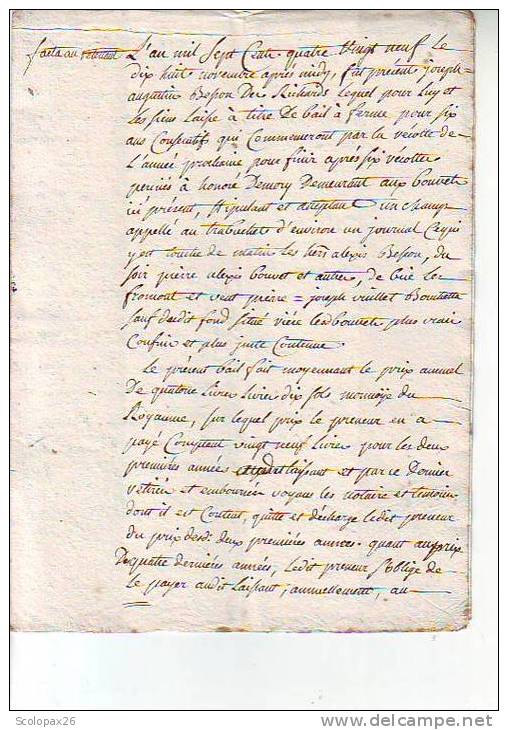 L'an mil Sept Cent quatre vingt neuf le
dix huit novembre après midy, fut présent joseph
augustin Besson Des Richards lequel pour luy et
les siens laisse à titre De bail à ferme pour six
ans Consecutifs qui Commenceront par la récolte de
L'année prochaine pour finir après six récoltes
perçues à honoré Demory Demeurant aux bouvet
ici présent, stipulant et acceptant un champ
appellé au trabuchet d'environ un journal Ce qui
y est touche de matin les hers alexis Besson, du
soir pierre alexis bouvet et autres, de bise les
fromont et vent pierre = joseph vuillet
sauf dudit fond situé plus vrais
Confins et plus juste Contenue.
Le présent bail fait moyennant le prix annuel
De quatorze Livres Livres dix sols monnoye du
Royaume, sur lequel prix le preneur en a
payé Comptant vingt neuf Livres pour les deux
premières années laissant et par ce Dernier
retirée et emboursée voyans les notaire et temoins
dont il est Content, quitte et décharge ledit preneur
du prix desd: deux premières années. quant au prix
De quatre dernières années, ledit preneur s'oblige de
le payer audit laissant, annuellement, au
Scolopax26
www.delcampe.net